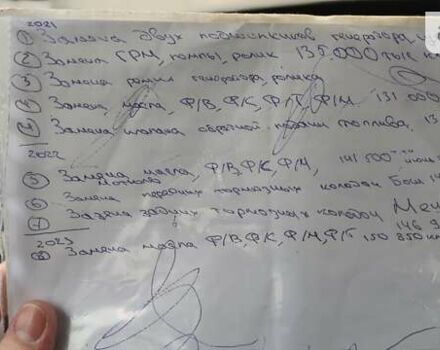 2021
① Замена двух подшипников генератора,
② Замена ГРМ, помпы, ролик 135.000 тыс
③ Замена ремня генератора, ролика
④ Замена масла, Ф/В, Ф/К, Ф/Т, Ф/М 131 000
④ Замена клапана обратной подачи топлива, 13
2022
⑤ Замена масла, Ф/В, Ф/К, Ф/М, 141 500
⑥ Замена передних тормозных колодок Бош 14
⑦ Замена задних тормозных колодок
146
2023
⑧ Замена масла Ф/В, Ф/К, Ф/М, Ф/Т 150 350